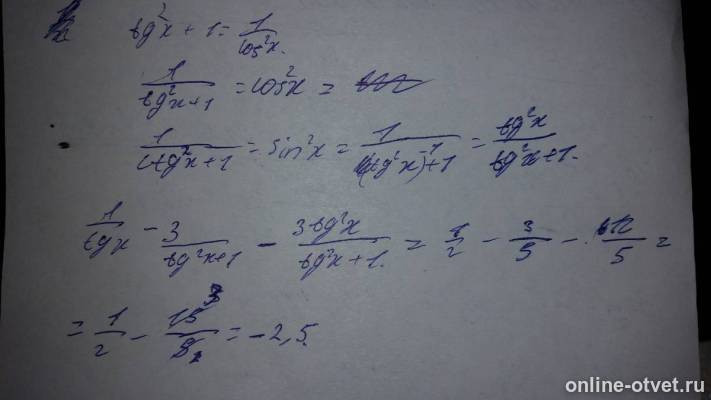 tg²x + 1 = 1/cos²x.
1/(tg²x+1) = cos²x =
1/(ctg²x+1) = sin²x = 1/((tg²x)⁻¹+1) = tg²x/(tg²x+1).
1/tgx - 3/(tg²x+1) - 3tg²x/(tg²x+1) = 1/2 - 3/5 - 12/5 =
= 1/2 - 15/5 = -2,5.
online-otvet.ru